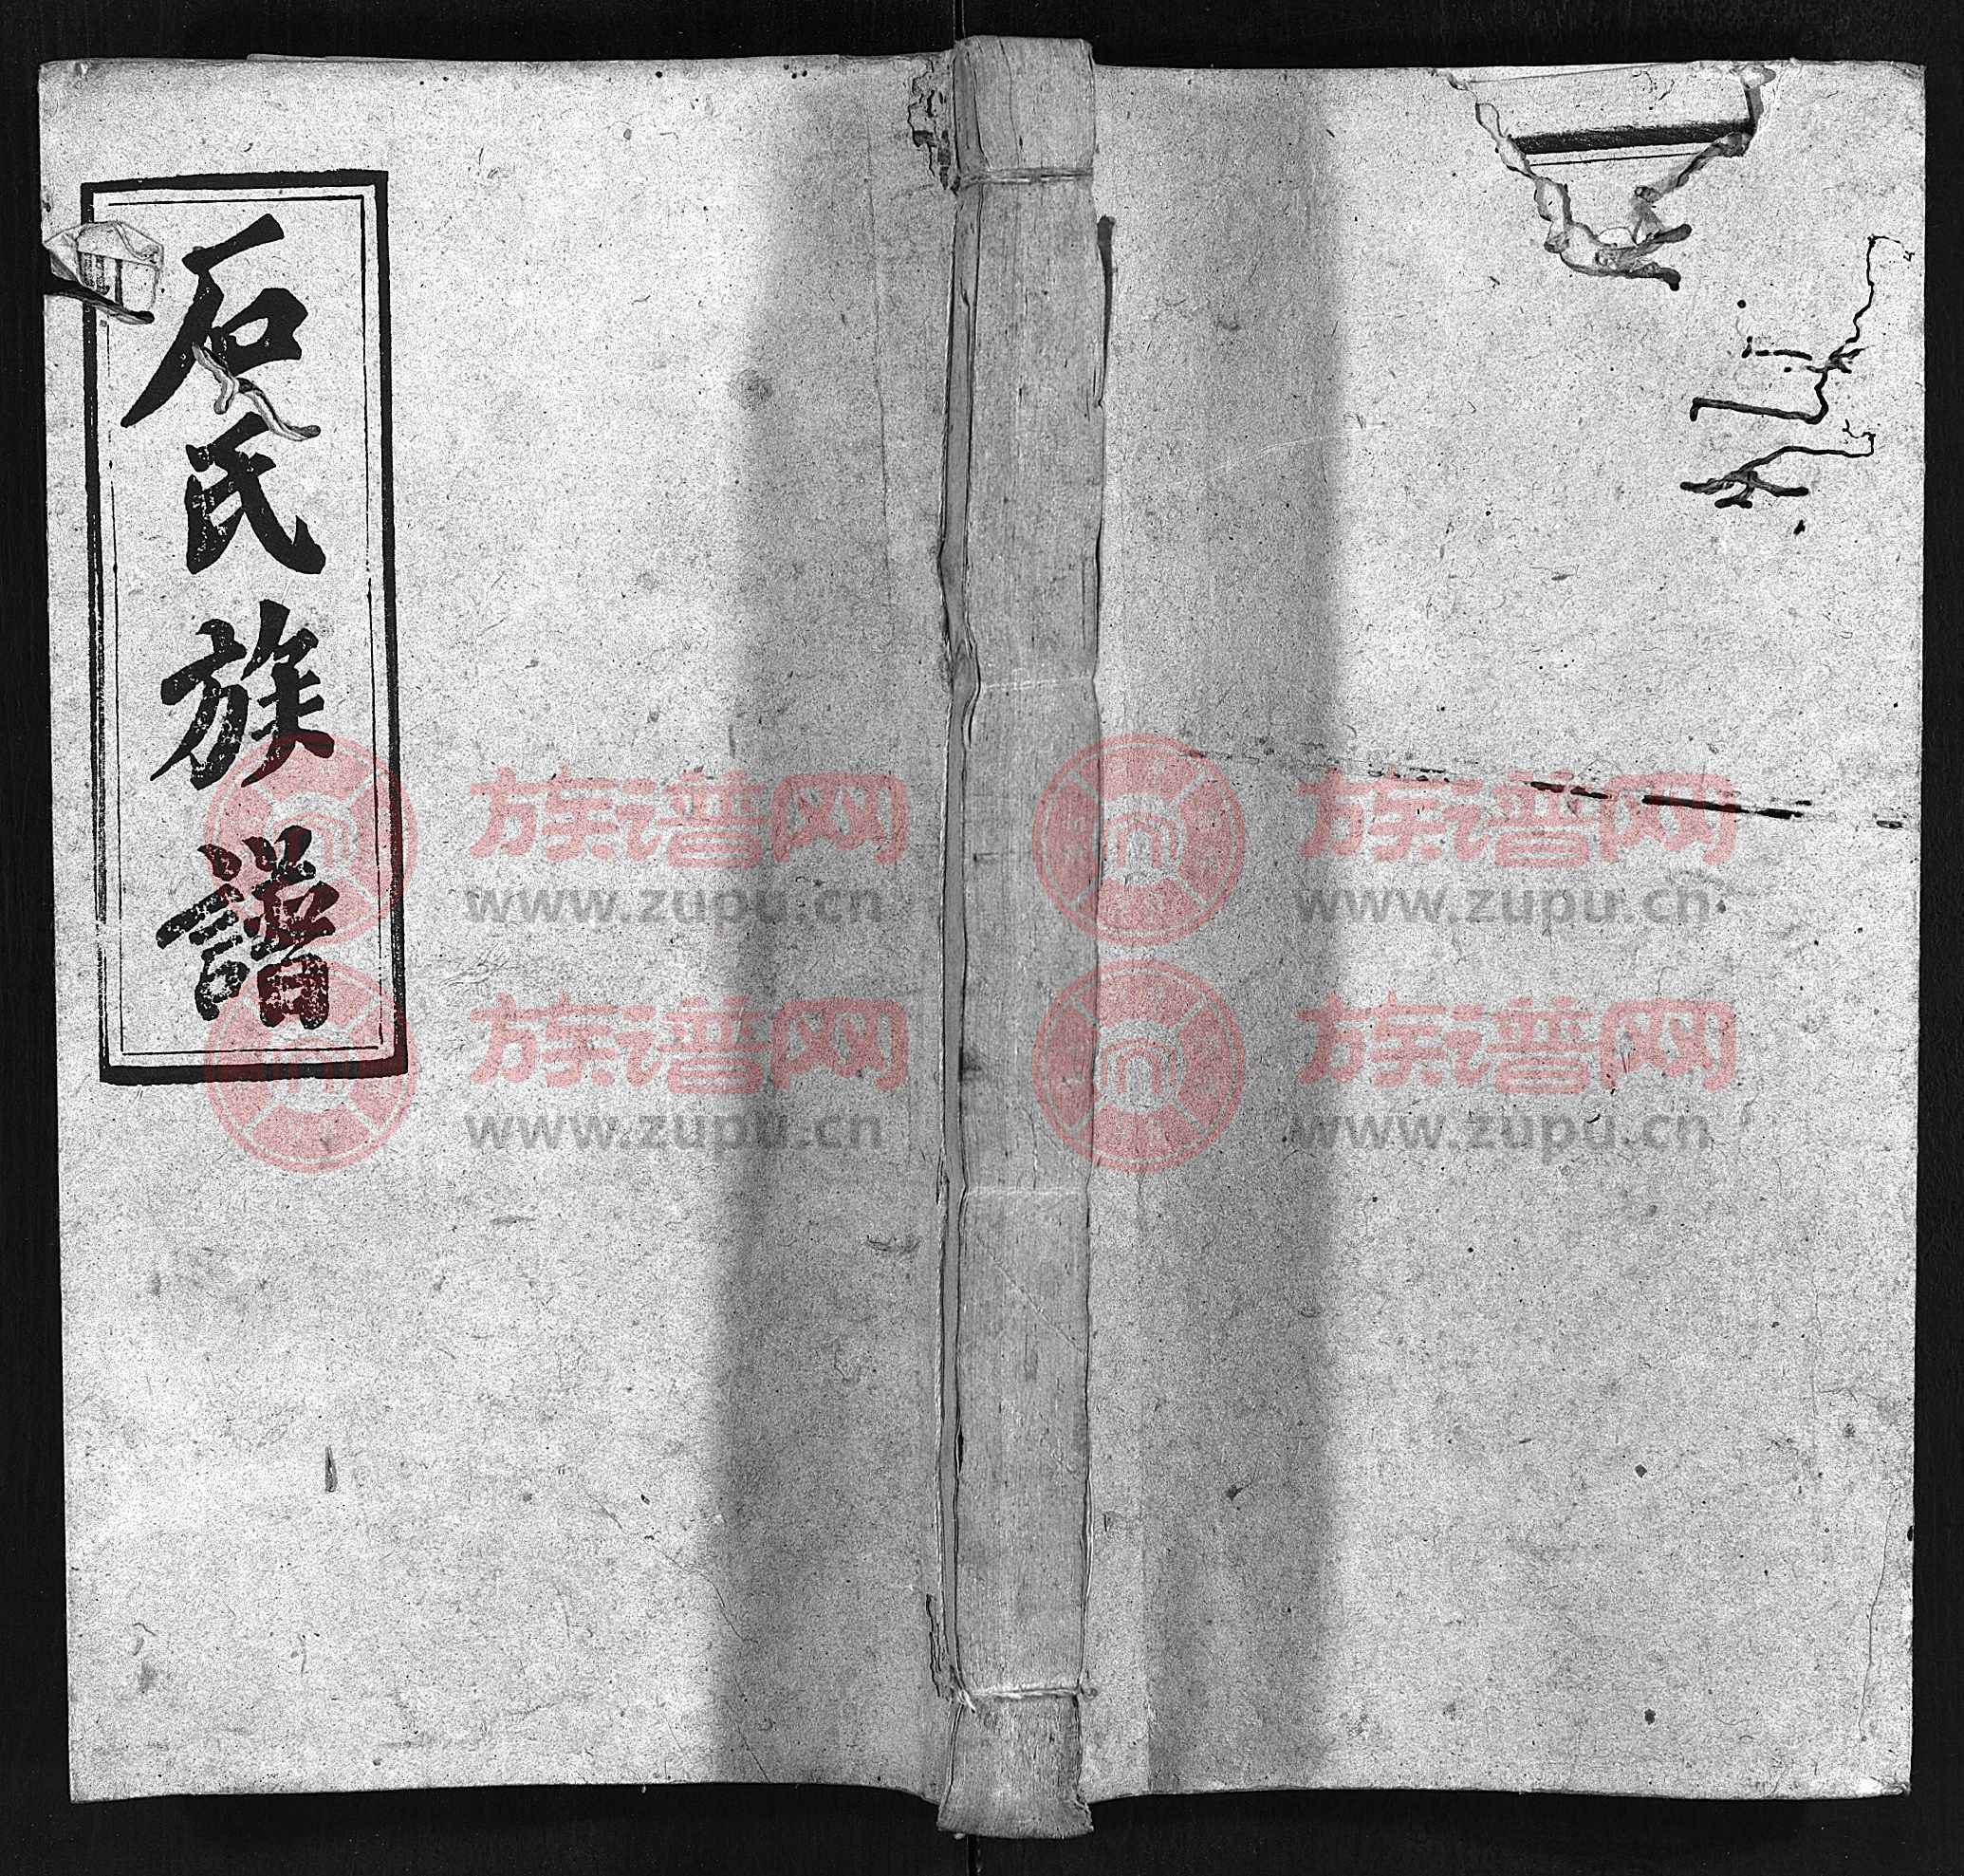 石氏族譜
族谱网 族谱网
www.zupu.cn www.zupu.cn
族谱网 族谱网
www.zupu.cn www.zupu.cn